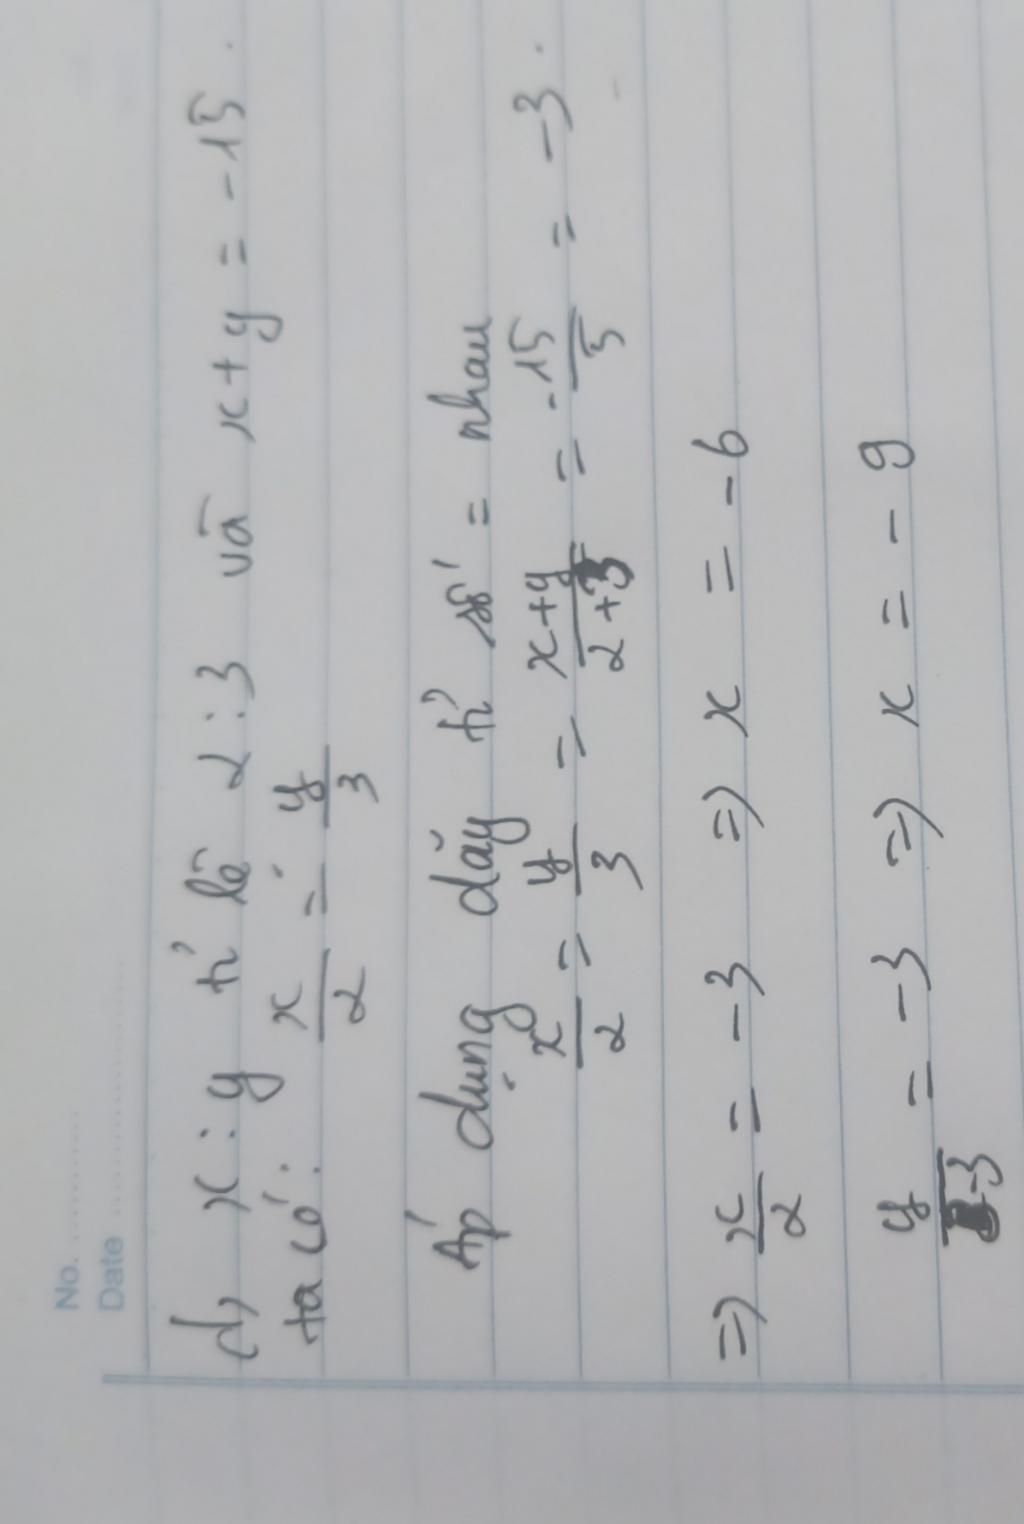 No. ............
Date ......................
d, x : y tỉ lệ 2 : 3 và x + y = -15.
ta có: x/2 = y/3
Áp dụng dãy tỉ số = nhau
x/2 = y/3 = x+y/2+3 = -15/5 = -3.
=) x/2 = -3 =) x = -6
y/3 = -3 =) x = -9